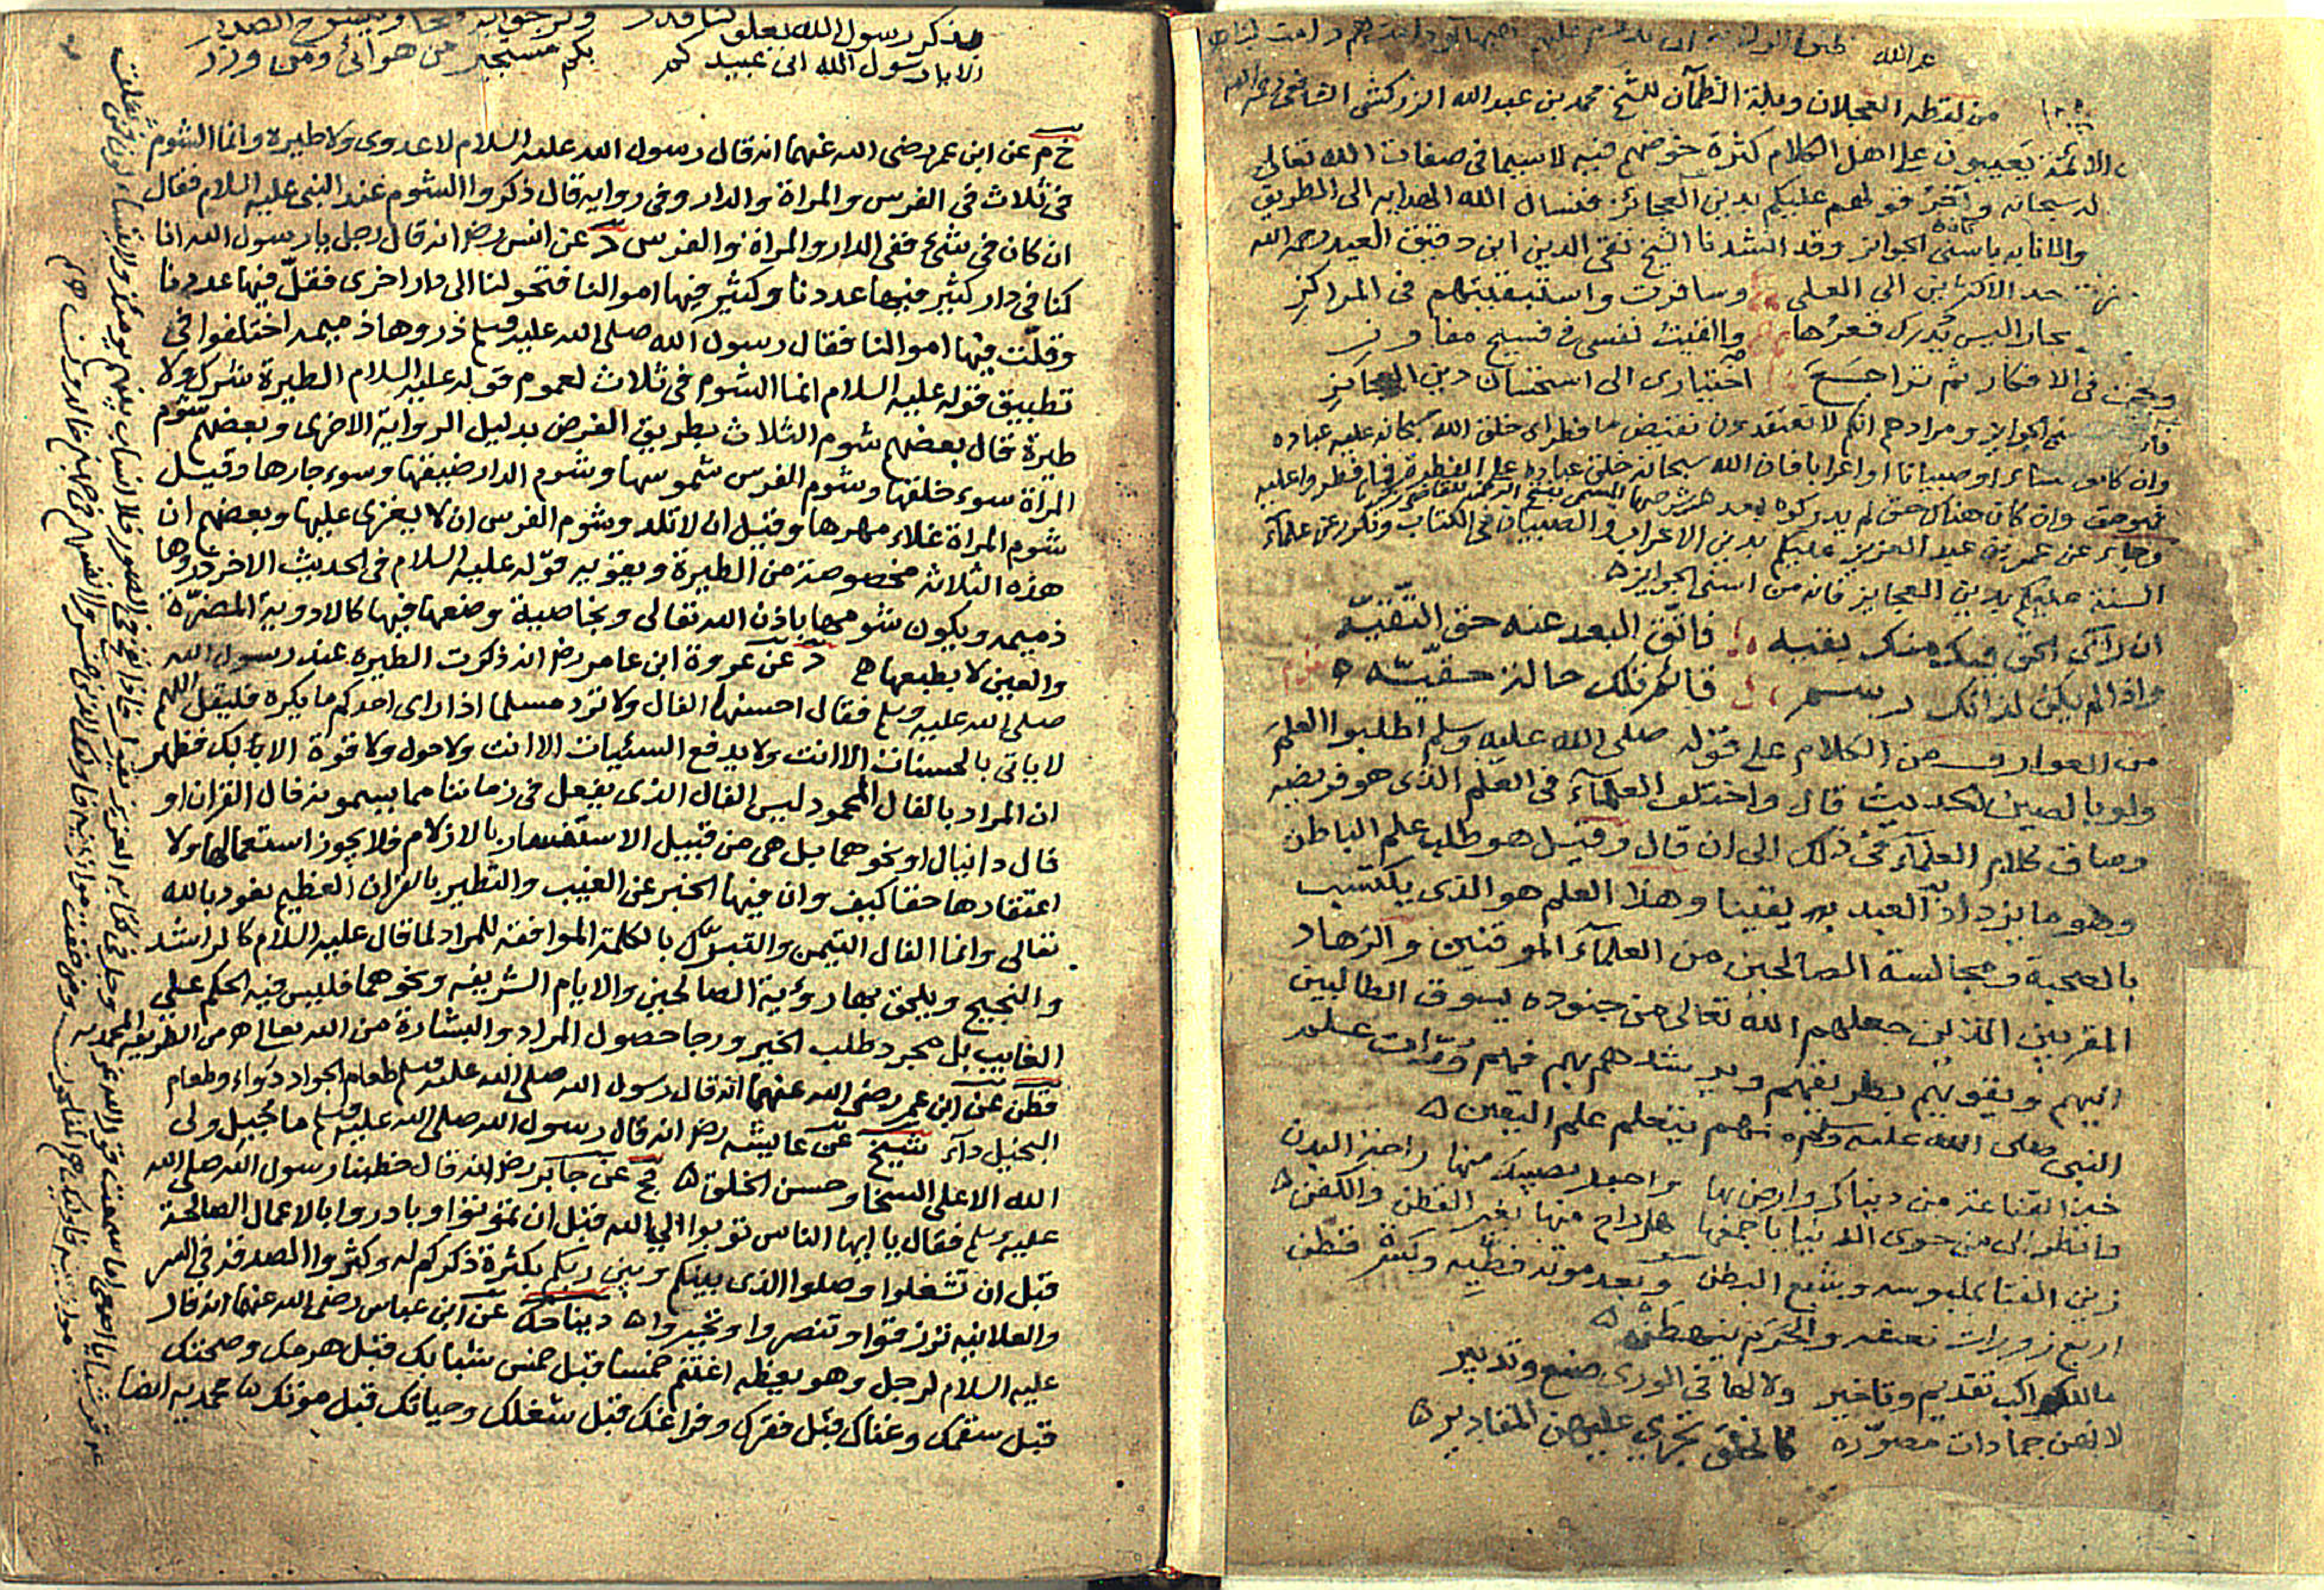 من لقطة العجلان وبلة الظمآن للشيخ محمد بن عبد الله الزركشي الشافعي رحمه الله
الائمة يعيبون على اهل الكلام كثرة خوضهم فيه لا سيما في صفات الله تعالى
سبحانه وآخر قولهم عليكم بدين العجائز فنسال الله الهداية الى الطريق
باسنى الجوائز وقد انشدنا الشيخ تقي الدين ابن دقيق العيد رحمه الله
حد الاكثرين الى العلى وسافرت واستبقيتهم في المراكز
بحار اليس يدرك قعرها والقيت نفسي في فسيح مفاوز
في الافكار ثم تراجع اختياري الى استحسان دين العجايز
الجوايز ومرادهم انكم لا تعتقدون نقيض ما فطر اى خلق الله سبحانه عليه عباده
وان كانوا نساء او صبيانا او اعرابا فان الله سبحانه خلق عباده على الفطرة فما فطروا عليه
فهو حق وان كان هناك حق لم يدركوه
وجاء عن عمر بن عبد العزيز عليكم بدين الاعراب والصبيان في الكتاب وتكرر عن علماء
السنة عليكم بدين العجايز فانه من اسنى الجوايز
ان رآك الحق فيك منك بقيه فاتق البعد عنه حق التقيه
واذا لم يكن لذاتك رسم حقيه
من العوارف من الكلام على قوله صلى الله عليه وسلم اطلبوا العلم
ولو بالصين الحديث قال واختلف العلماء في العلم الذي هو فريضه
وساق كلام العلماء في ذلك الى ان قال وقيل هو طلب علم الباطن
وهو ما يزداد به العبد يقينا وهذا العلم هو الذي يكتسب
بالصحبة ومجالسة الصالحين من العلماء الموقنين والزهاد
المقربين الذين جعلهم الله تعالى من جنوده يسوق الطالبين
اليهم ويقويهم بطريقهم ويرشدهم بهم فهم وراث علم
النبي صلى الله عليه وسلم ومنهم يتعلم علم اليقين
خذ القناعة من دنياك وارض بها واجعل نصيبك منها راحة البدن
وانظر الى من حوى الدنيا باجمعها هل راح منها بغير القطن والكفن
زين الفتا بملبوسه وبشبع البطن وبعد موته
ما للكواكب تقديم وتاخير ولا لها في الورى صنع وتدبير
لانهن جمادات مصورة كالخلق تجري عليهن المقادير
يذكر رسول الله
الا يا رسول الله اني عبيدكم بكم مستجير من هوائي ومن وزر
خ م عن ابن عمر رضى الله عنهما انه قال رسول الله عليه السلام لا عدوى ولا طيرة وانما الشوم
في ثلاث في الفرس والمراة والدار وفي رواية قال ذكروا الشوم عند النبى عليه السلام فقال
ان كان في شئ ففى الدار والمراة والفرس د عن انس رض انه قال رجل يا رسول الله انا
كنا في دار كثير فيها عددنا وكثير فيها اموالنا فتحولنا الى دار اخرى فقل فيها عددنا
وقلت فيها اموالنا فقال رسول الله صلى الله عليه وسلم ذروها ذميمه اختلفوا في
تطبيق قوله عليه السلام انما الشوم في ثلاث لعموم قوله عليه السلام الطيرة شرك ولا
طيرة قال بعضهم شوم الثلاث بطريق الفرض بدليل الرواية الاخرى وبعضهم شوم
المراة سوء خلقها وشوم الفرس شموسها وشوم الدار ضيقها وسوء جارها وقيل
شوم المراة غلاء مهرها وقيل ان لا تلد وشوم الفرس ان لا يغزى عليها وبعضهم ان
هذه الثلاثة مخصوصة من الطيرة ويقويه قوله عليه السلام في الحديث الاخر ذروها
ذميمه ويكون شومها باذن الله تعالى وبخاصية وضعها فيها كالادوية المضرة
والعين لا بطبعها د عن عروة ابن عامر رض انه ذكرت الطيره عند رسول الله
صلى الله عليه وسلم فقال احسنها الفال ولا ترد مسلما اذا راى احدكم ما يكره فليقل اللهم
لا ياتى بالحسنات الا انت ولا يدفع السيئات الا انت ولا حول ولا قوة الا بك فظهر
ان المراد بالفال المحمود ليس الفال الذى يفعل في زماننا مما يسمونه فال القران او
فال دانيال او نحوهما بل هى من قبيل الاستقسام بالازلام فلا يجوز استعمالها ولا
اعتقادها حقا كيف وان فيها الخبر عن الغيب والتطير بالقران العظيم نعوذ بالله
تعالى وانما الفال التيمن والتبرك بالكلمة الموافقة للمراد لما قال عليه السلام كالراشد
والنجيح ويلحق بها رؤية الصالحين والايام الشريفه ونحوهما فليس فيه الحكم على
الغايب بل مجرد طلب الخير ورجا حصول المراد والبشارة من الله تعالى من الطريقة المحمديه
قطن عن ابن عمر رضى الله عنهما انه قال رسول الله صلى الله عليه وسلم طعام الجواد دواء وطعام
البخيل داء شيخ عن عايشه رض انه قال رسول الله صلى الله عليه وسلم ما جبل ولى
الله الا على السخا وحسن الخلق مج عن جابر رض انه قال خطبنا رسول الله صلى الله
عليه وسلم فقال يا ايها الناس توبوا الى الله قبل ان تموتوا وبادروا بالاعمال الصالحة
قبل ان تشغلوا وصلوا الذى بينكم وبين ربكم بكثرة ذكركم له وكثروا الصدقة في السر
والعلانيه ترزقوا وتنصروا وتجبروا دنيا حك عن ابن عباس رضى الله عنهما انه قال
عليه السلام لرجل وهو يعظه اغتنم خمسا قبل خمس شبابك قبل هرمك وصحتك
قبل سقمك وغناك قبل فقرك وفراغك قبل شغلك وحياتك قبل موتك محمديه ايضا